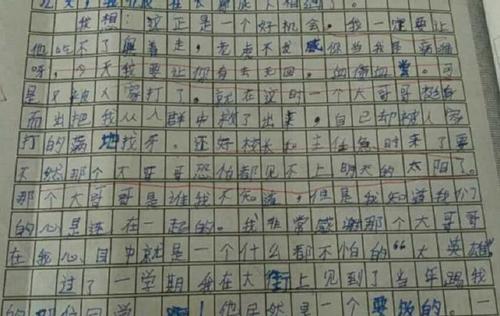 我想：这正是一个好机会，我一定要让
他吃不了兜着走，老虎不发威你当我是病猫
呀，今天我要让你有去无回，血债血尝。可
是又被人家打了。就在这时一个大哥哥挺身
而出把我从人群中救了出来，自己却被人家
打的满地找牙。还好校长和主任急时来了要
不然那个大哥哥恐怕都见不上明天的太阳了。
那个大哥哥是谁我不知道，但是我知道我们
的心是连在一起的。我非常感谢那个大哥哥
在我心目中就是一个什么都不怕的“大英雄
过了一学期我在大街上见到了当年踢我
的那位同学 ！他居然是一个要饭的。一